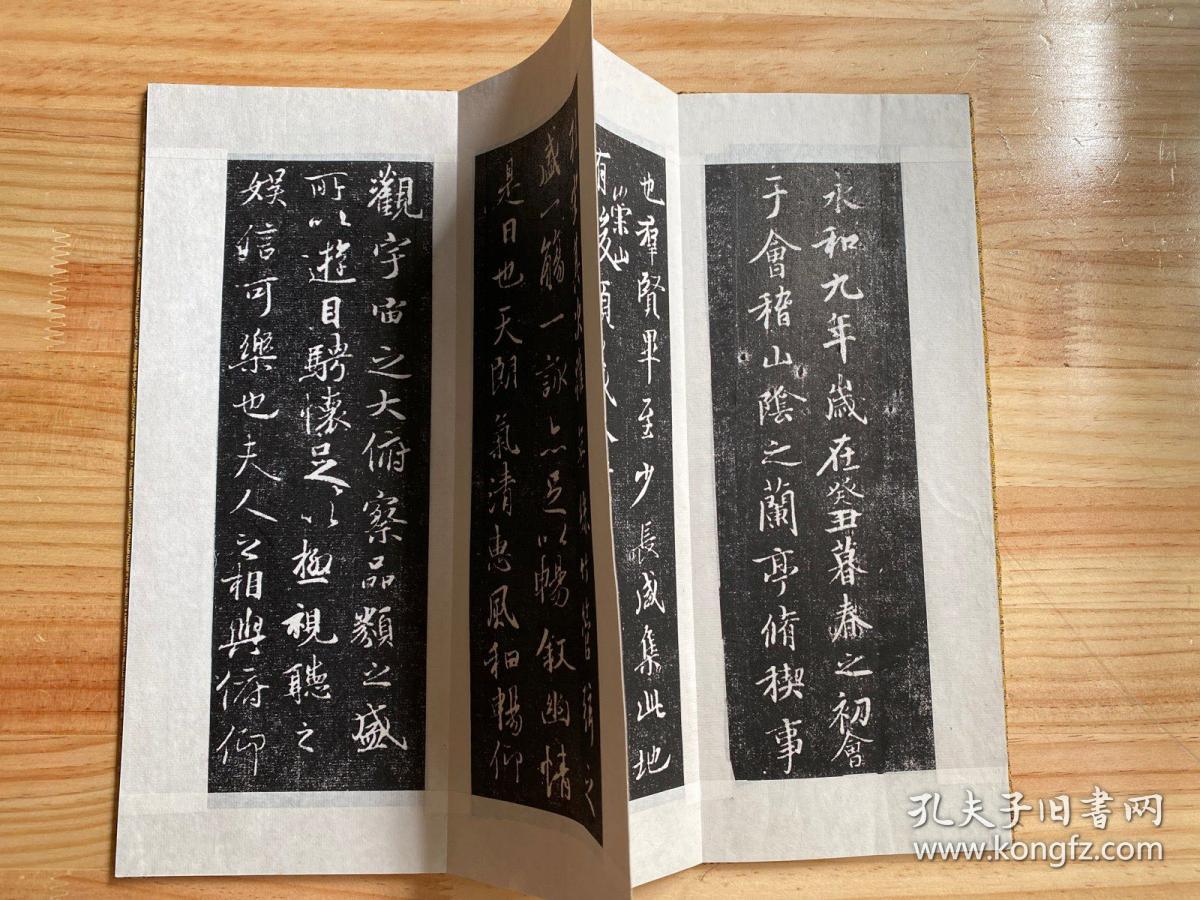 永和九年歲在癸丑暮春之初會
于會稽山陰之蘭亭脩稧事
也羣賢畢至少長咸集此地
崇山
有
領
盛一觴一詠亦足以暢敘幽情
是日也天朗氣清惠風和暢仰
觀宇宙之大俯察品類之盛
所以遊目騁懷足以極視聽之
娛信可樂也夫人之相與俯仰
孔夫子旧书网
www.kongfz.com